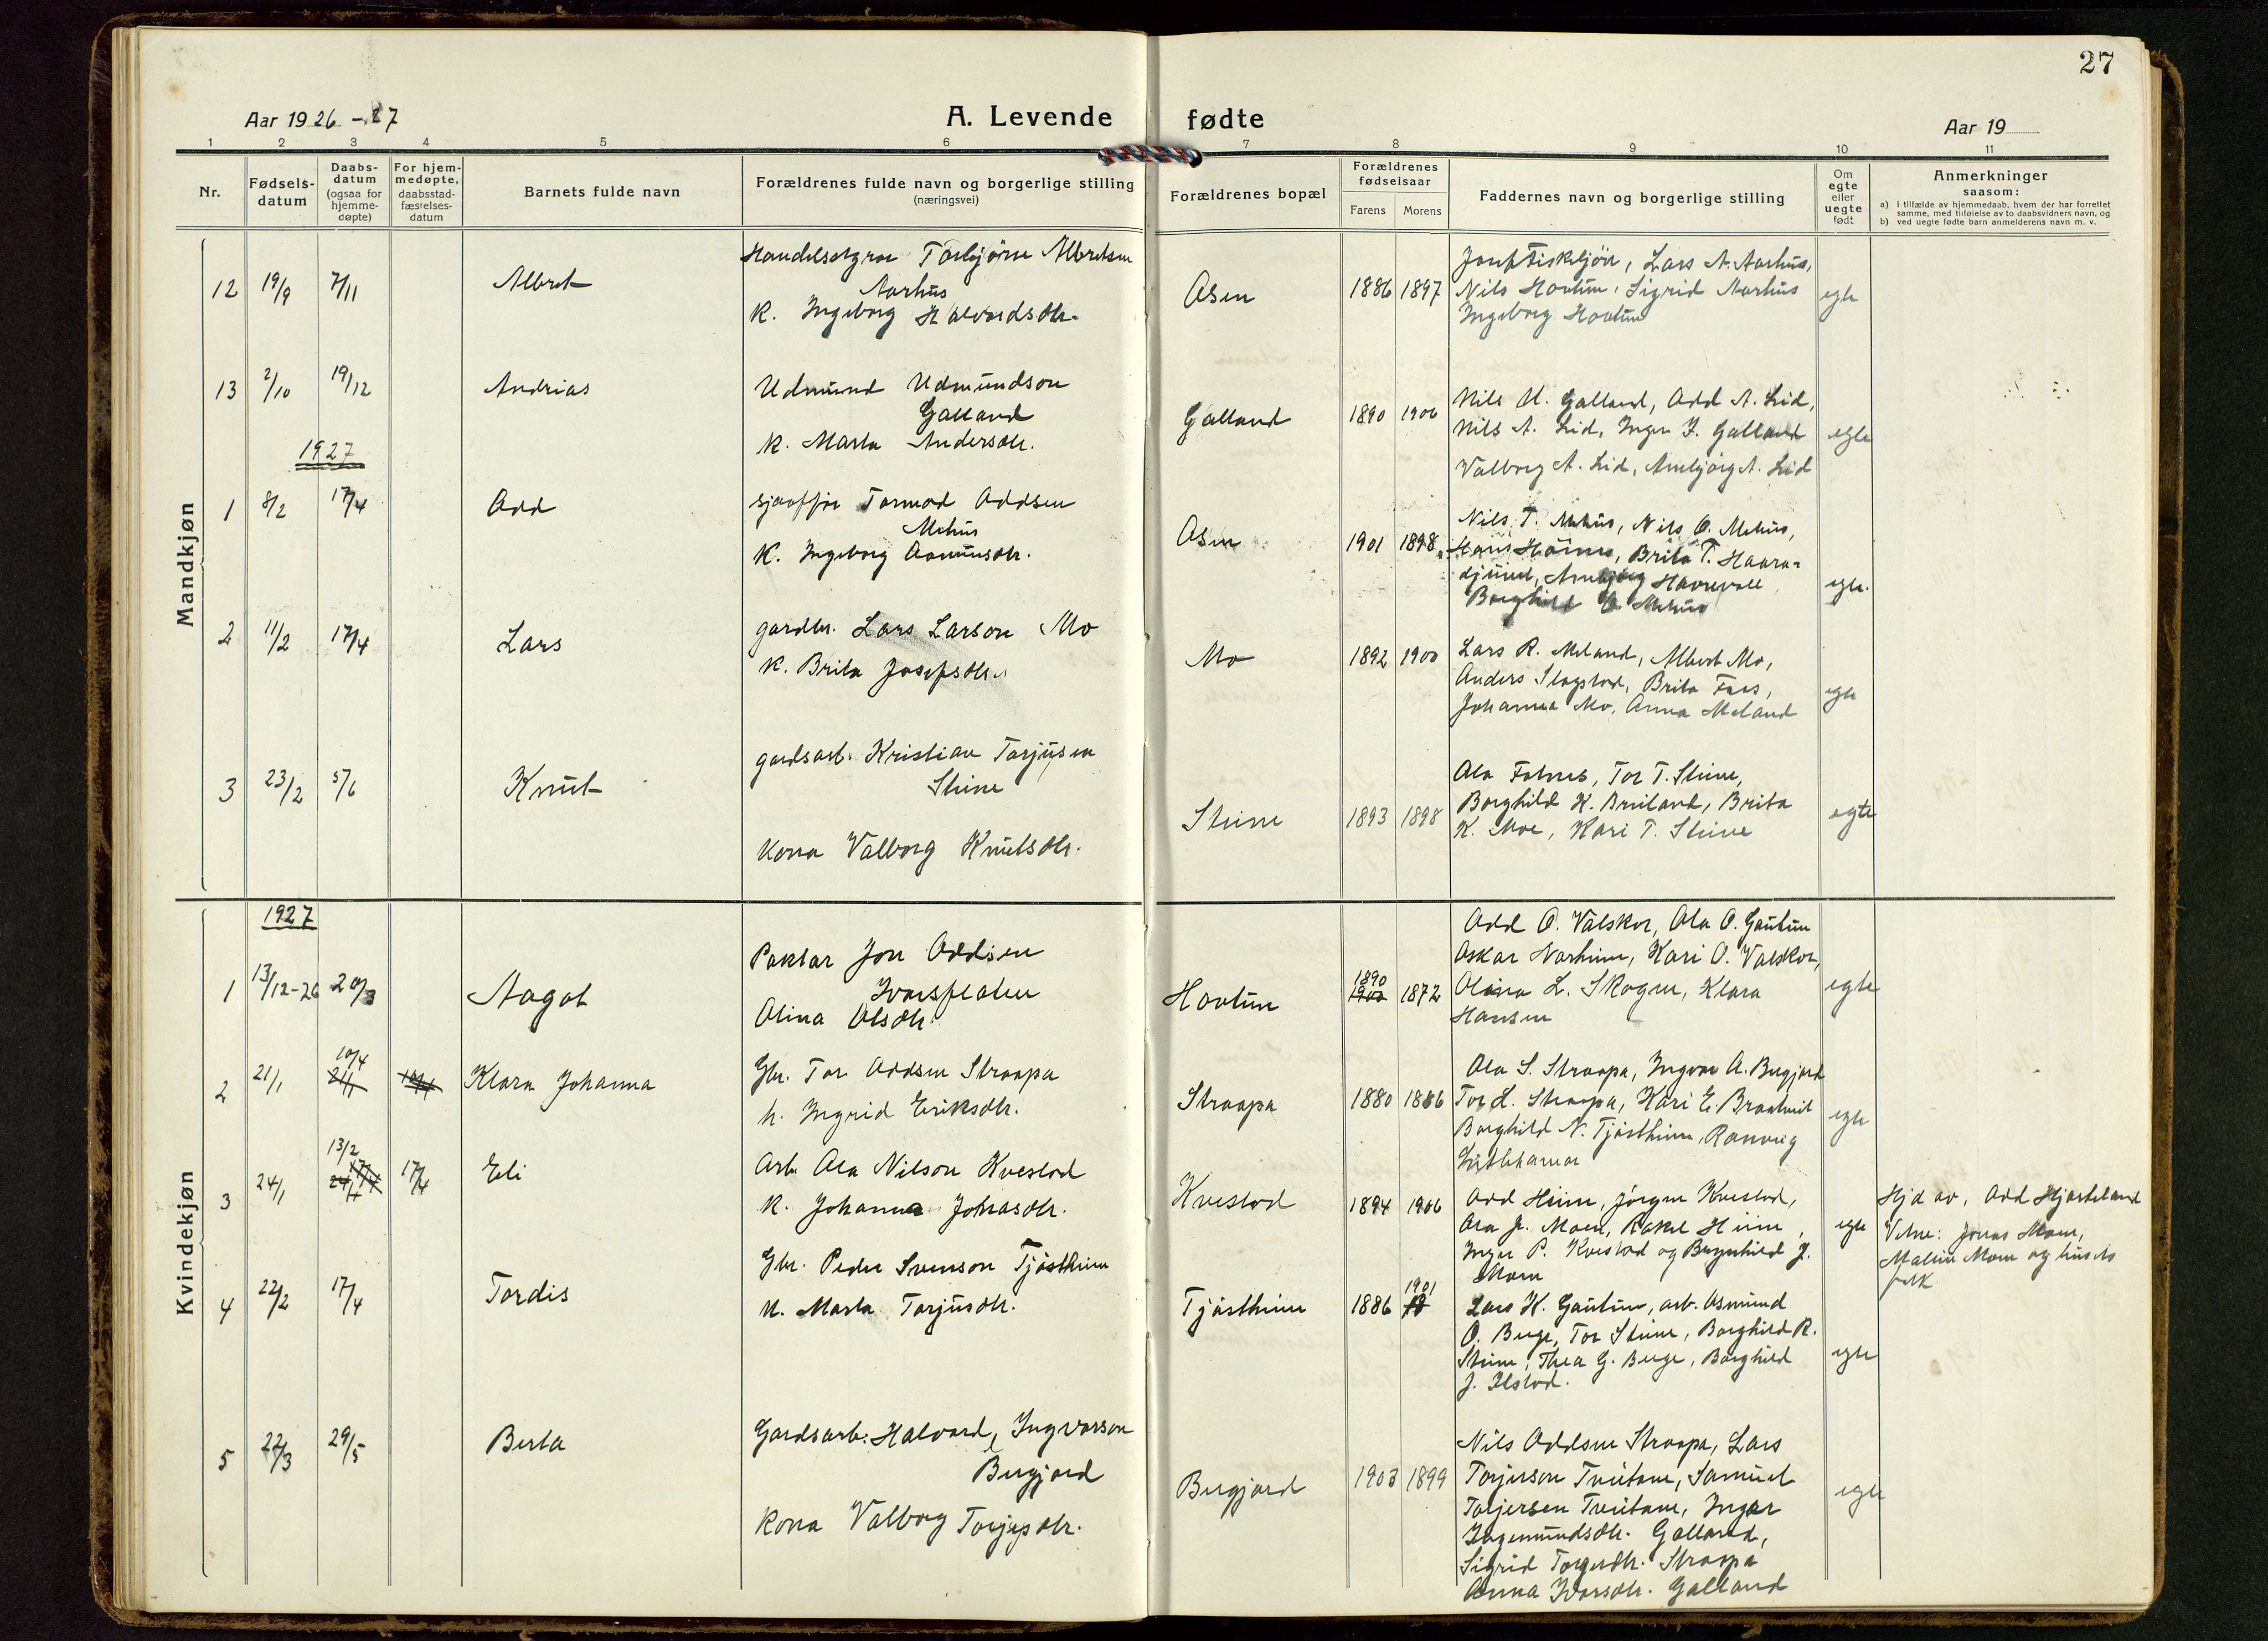 27
Aar 1926 - 27
A. Levende fødte
Aar 19
1 2 3 4 5 6 7 8 9 10 11
Nr.
Fødsels-
datum
Daabs-
datum
(ogsaa for
hjemme-
døpte)
For hjem-
medøpte,
daabsstad-
fæstelses-
datum
Barnets fulde navn
Forældrenes fulde navn og borgerlige stilling
(næringsvei)
Forældrenes bopæl
Forældrenes
fødselsaar
Farens Morens
Faddernes navn og borgerlige stilling
Om
egte
eller
uegte
født
Anmerkninger
saasom:
a) i tilfælde av hjemmedaab, hvem der har forrettet
samme, med tilføielse av to daabsvidners navn, og
b) ved uegte fødte barn anmelderens navn m. v.
Mandkjøn
12 19/9 7/11 Albret
Torbjörn Albretsen
Aarhus
K. Ingeborg Halvordsdtr.
Asen 1886 1897
Lars A. Aarhus,
Nils Hovtun, Sigrid Aarhus
Ingeborg Hovtun
egte
13 2/10 19/12 Andrias
Udmund Udmundson
Galland
K. Marta Andersdtr.
Galland 1890 1906
Nils U. Galland, Odd A. Lid,
Nils A. Lid, Inger J. Galland
Valborg A. Lid, Annbjørg A. Lid
egte
1927
1 8/2 17/4 Odd
sjaaffør Tormod Oddsen
Mehus
K. Ingeborg Aasmunsdtr.
Asen 1901 1898
Nils T. Mehus, Nils O. Mehus,
Brita T. Haara-
Havrevoll
Borghild O. Mehus
egte.
2 11/2 17/4 Lars
gardbr. Lars Larson Mo
K. Brita Josefsdtr.
Mo 1892 1900
Lars R. Meland, Albert Mo,
Anders Slagstad, Brita Faes,
Johanna Mo, Anna Meland
egte
3 23/2 5/6 Knut
gardsarb. Kristian Torjusen
Stuve
Kona Valborg Knutsdtr.
Stuve 1893 1898
Ola Fatnes, Tor T. Stuve,
Borghild K. Bruland, Brita
K. Moe, Kari T. Stuve
egte
Kvindekjøn
1927
1 13/12-26 20/3 Aagot
Paktar Jon Oddsen
Ivarsflaten
Olina Olsdtr.
Hovtun 1890 1900 1872
Odd O. Valskor, Ola O. Gautun
Oskar Norheim, Kari O. Valskor,
Olina L. Skogen, Klara
Hansen
egte
2 21/1 10/4 Klara Johanna
Gbr. Tor Oddsen Straapa
h. Ingrid Eriksdtr.
Straapa 1880 1886
Ola S. Straapa, Ingvar A. Bergjord
Tor L. Straapa, Kari E. Braatveit
Borghild N. Tjøstheim, Ranveig
egte
3 24/1 13/2 17/4 Eli
Arb. Ola Nilson Kvestad
K. Johanna Johnsdtr.
Kvestad 1894 1906
Odd Heim, Jörgen Kvestad,
Ola J. Moen, Rakel Heim,
Inger P. Kvestad og Brynhild J.
Moen
egte
Hjd av, Odd Hjorteland
Vitne: Jonas Moen,
Malene Moen og husets
folk
4 22/2 17/4 Tordis
Gbr. Peder Svenson Tjøstheim
K. Marta Torjusdtr.
Tjøstheim 1886 1901
Lars K. Gautun, arb. Asmund
O. Berge, Tor Stuve, Borghild R.
Stuve, Thea G. Berge, Borghild
J. Ilstad.
egte
5 22/3 29/5 Berta
Gardsarb. Halvard Ingvarson
Bergjord
Kona Valborg Torjusdtr.
Bergjord 1903 1899
Nils Oddsen Straapa, Lars
Torjerson Tveitane, Samuel
Torjersen Tveitane, Inger
Ingemundsdtr. Galland,
Sigrid Torgerdtr. Straapa
Anna Ivarsdtr. Galland
egte